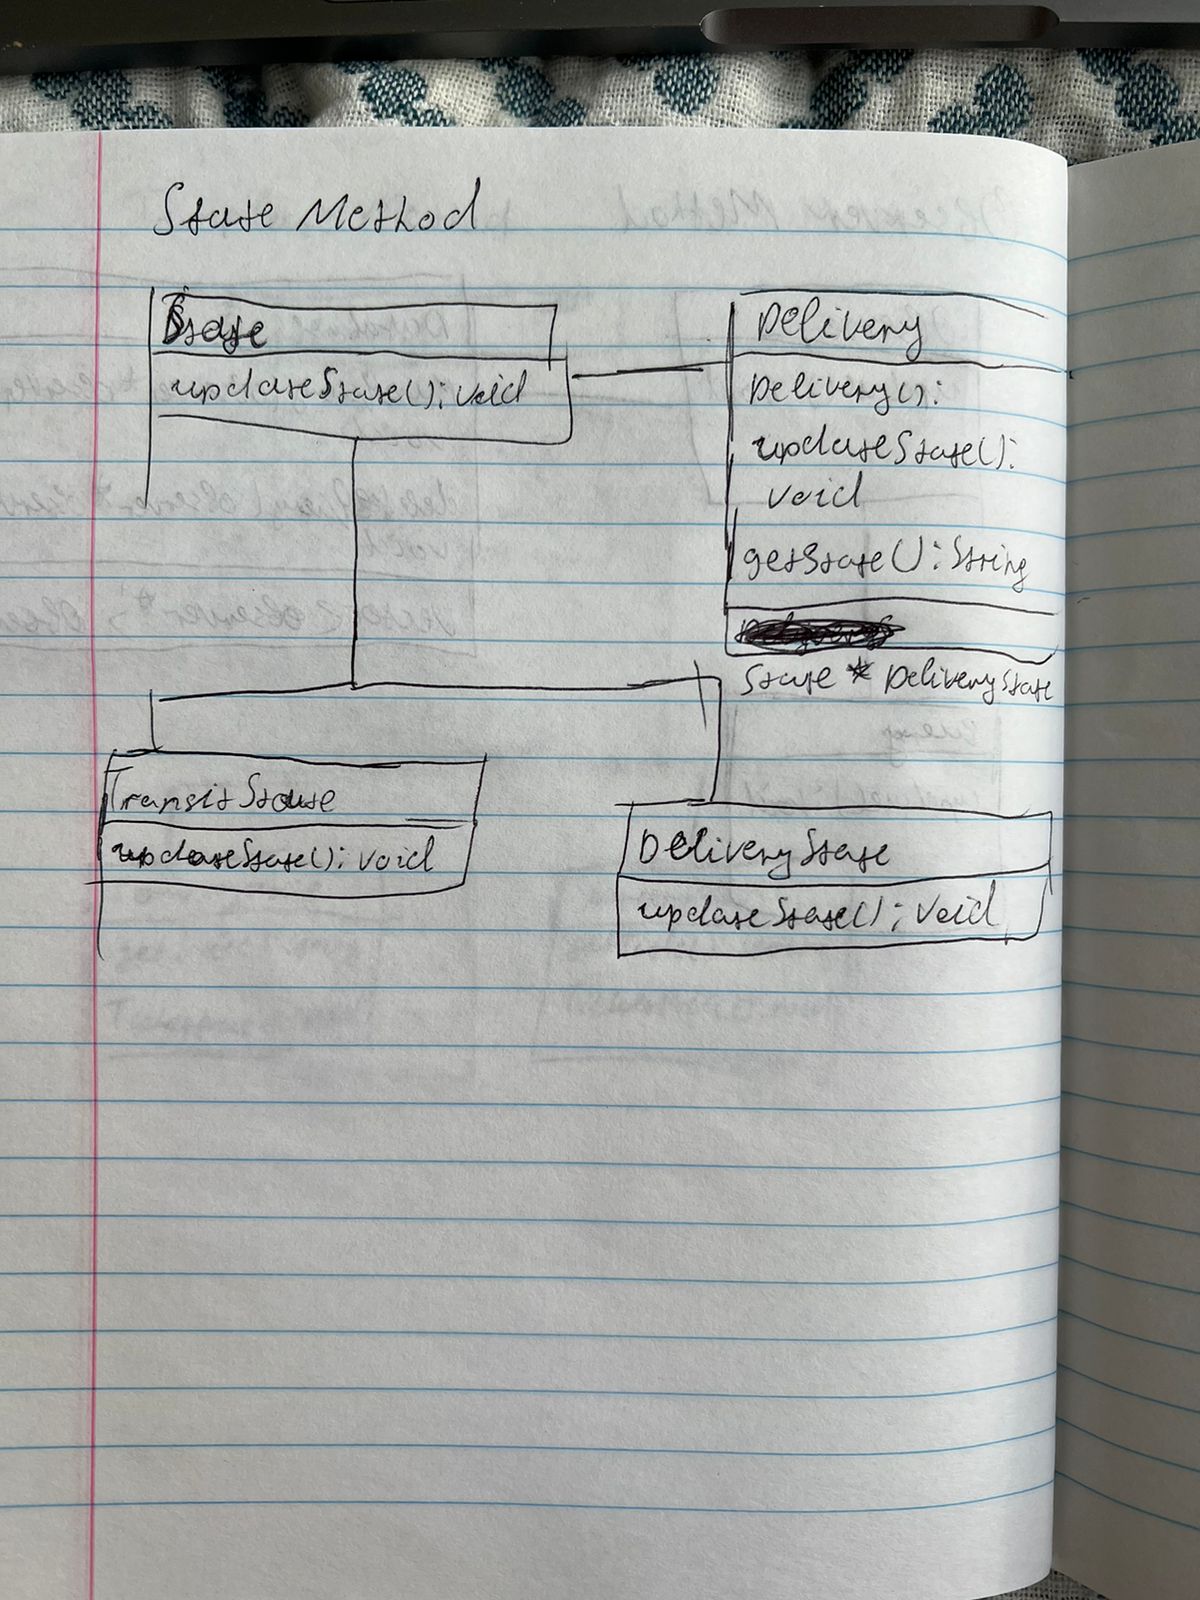 State Method
State
updateState(): void
Delivery
Delivery():
updateState():
void
getState(): String
State * DeliveryState
TransitState
updateState(): void
DeliveryState
updateState(): void